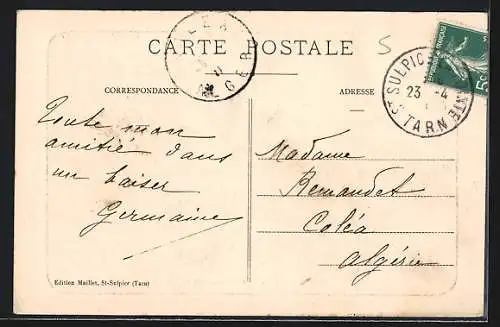 CARTE POSTALE
5
CORRESPONDANCE
ADRESSE
ALGER
ST SULPICE
23 -4
TARN
5c
Toute mon
amitié dans
un baiser
Germaine
Madame
Remandet
Coléa
Algérie
Edition Maillet, St-Sulpice (Tarn)